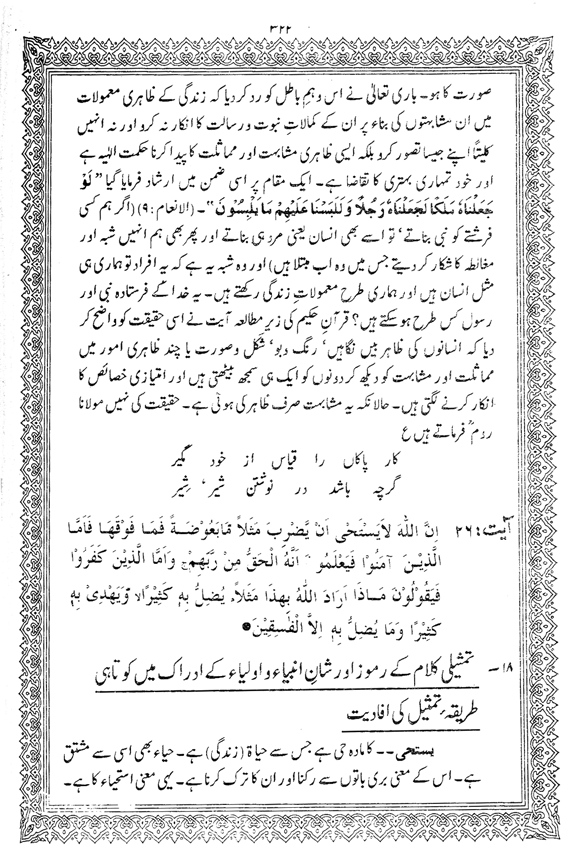 ۳۲۲
صورت کا ہو۔ باری تعالیٰ نے اس وہم باطل کو رد کر دیا کہ زندگی کے ظاہری معمولات
میں ان مشابہتوں کی بناء پر ان کے کمالاتِ نبوت و رسالت کا انکار نہ کرو اور نہ انہیں
کلیتاً اپنے جیسا تصور کرو بلکہ ایسی ظاہری مشابہت اور مماثلت کا پیدا کرنا حکمت الٰہیہ ہے
اور خود تمہاری بہتری کا تقاضا ہے۔ ایک مقام پر اسی ضمن میں ارشاد فرمایا گیا ”لَوْ
جَعَلْنَاهُ مَلَكًا لَّجَعَلْنَاهُ رَجُلًا وَّلَلَبَسْنَا عَلَيْهِمْ مَا يَلْبِسُونَ“۔ (الانعام:۹) (اگر ہم کسی
فرشتے کو نبی بناتے‘ تو اسے بھی انسان یعنی مرد ہی بناتے اور پھر بھی ہم انہیں شبہ اور
مغالطہ کا شکار کر دیتے جس میں وہ اب مبتلا ہیں) اور وہ شبہ یہ ہے کہ یہ افراد تو ہماری ہی
مثل انسان ہیں اور ہماری طرح معمولاتِ زندگی رکھتے ہیں۔ یہ خدا کے فرستادہ نبی اور
رسول کس طرح ہو سکتے ہیں؟ قرآنِ حکیم کی زیر مطالعہ آیت نے اسی حقیقت کو واضح کر
دیا کہ انسانوں کی ظاہر بیں نگاہیں‘ رنگ و بو‘ شکل و صورت یا چند ظاہری امور میں
مماثلت اور مشابہت کو دیکھ کر دونوں کو ایک ہی سمجھ بیٹھتی ہیں اور امتیازی خصائص کا
انکار کرنے لگتی ہیں۔ حالانکہ یہ مشابہت صرف ظاہر کی ہوتی ہے۔ حقیقت کی نہیں مولانا
رومؒ فرماتے ہیں ع
کار پاکاں را قیاس از خود مگیر
گرچہ باشد در نوشتن شیر‘ شِیر
آیت:۲۶ اِنَّ اللّٰهَ لَا يَسْتَحْيٖ اَنْ يَّضْرِبَ مَثَلًا مَّا بَعُوْضَةً فَمَا فَوْقَهَا فَاَمَّا
الَّذِيْنَ اٰمَنُوْا فَيَعْلَمُوْنَ اَنَّهُ الْحَقُّ مِنْ رَّبِّهِمْ ج وَاَمَّا الَّذِيْنَ كَفَرُوْا
فَيَقُوْلُوْنَ مَاذَآ اَرَادَ اللّٰهُ بِهٰذَا مَثَلًا ۘ يُضِلُّ بِهٖ كَثِيْرًا لا وَّيَهْدِيْ بِهٖ
كَثِيْرًا وَمَا يُضِلُّ بِهٖ اِلَّا الْفٰسِقِيْنَ ●
۱۸۔ تمثیلی کلام کے رموز اور شانِ انبیاء و اولیاء کے ادراک میں کوتاہی
طریقہ تمثیل کی افادیت
یستحیٖ ۔۔ کا مادہ حی ہے جس سے حیاۃ (زندگی) ہے۔ حیاء بھی اسی سے مشتق
ہے۔ اس کے معنی بری باتوں سے رکنا اور ان کا ترک کرنا ہے۔ یہی معنی استحیاء کا ہے۔